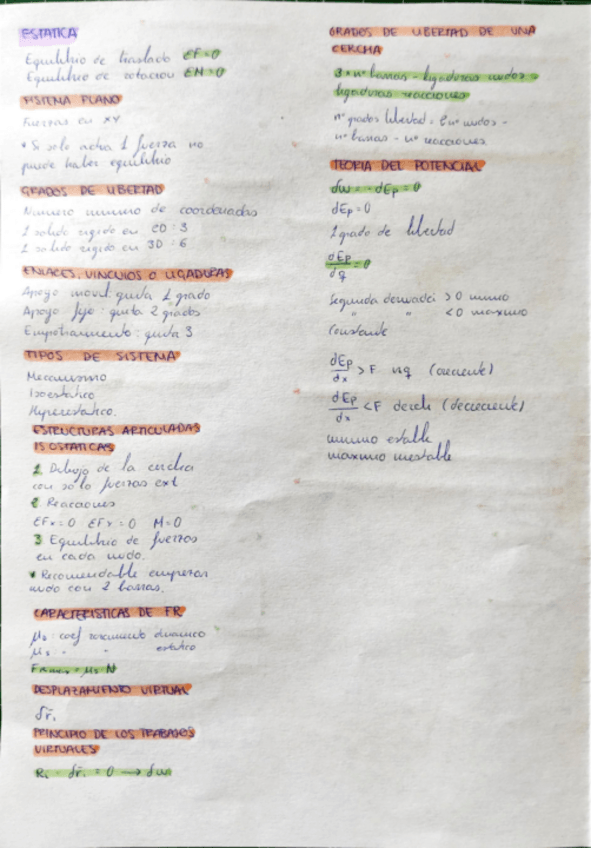 ESTATICA
Equilibrio de traslado EF=0
Equilibrio de rotacion EM=0
SISTEMA PLANO
Fuerzas en XY
* Si solo actua 1 fuerza no
puede haber equilibrio
GRADOS DE LIBERTAD
Numero minimo de coordenadas
1 solido rigido en 2D : 3
1 solido rigido en 3D : 6
ENLACES, VINCULOS O LIGADURAS
Apoyo movil: quita 1 grado
Apoyo fijo: quita 2 grados
Empotramiento: quita 3
TIPOS DE SISTEMA
Mecanismo
Isoestatico
Hiperestatico.
ESTRUCTURAS ARTICULADAS
ISOSTATICAS
1. Dibujo de la cercha
con solo fuerzas ext
2. Reacciones
EFx=0 EFy=0 M=0
3 Equilibrio de fuerzas
en cada nudo.
* Recomendable empezar
nudo con 2 barras.
CARACTERISTICAS DE FR
μd: coef rozamiento dinamico
μs: " " estatico
FRmax = μs·N
DESPLAZAMIENTO VIRTUAL
δr̄i
PRINCIPIO DE LOS TRABAJOS
VIRTUALES
Ri · δr̄i = 0 → δw
GRADOS DE LIBERTAD DE UNA
CERCHA
3 * nº barras - ligaduras nudos -
ligaduras reacciones
nº grados libertad = 2nº nudos -
nº barras - nº reacciones
TEORIA DEL POTENCIAL
δw = - dEp = 0
dEp = 0
1 grado de libertad
dEp/dq = 0
Segunda derivada > 0 minimo
" " < 0 maximo
Constante
dEp/dx > F izq (creciente)
dEp/dx < F derch (decreciente)
minimo estable
maximo inestable